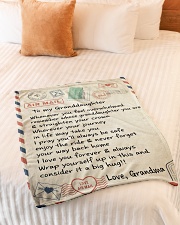 AIR MAIL
To my Granddaughter
Whenever you feel overwhelmed
remember whose granddaughter you are
& straighten your crown
Wherever your journey
in life may take you
I pray you'll always be safe
enjoy the ride & never forget
your way back home
I love you forever & always
Wrap yourself up in this and
consider it a big hug!
Love, Grandma